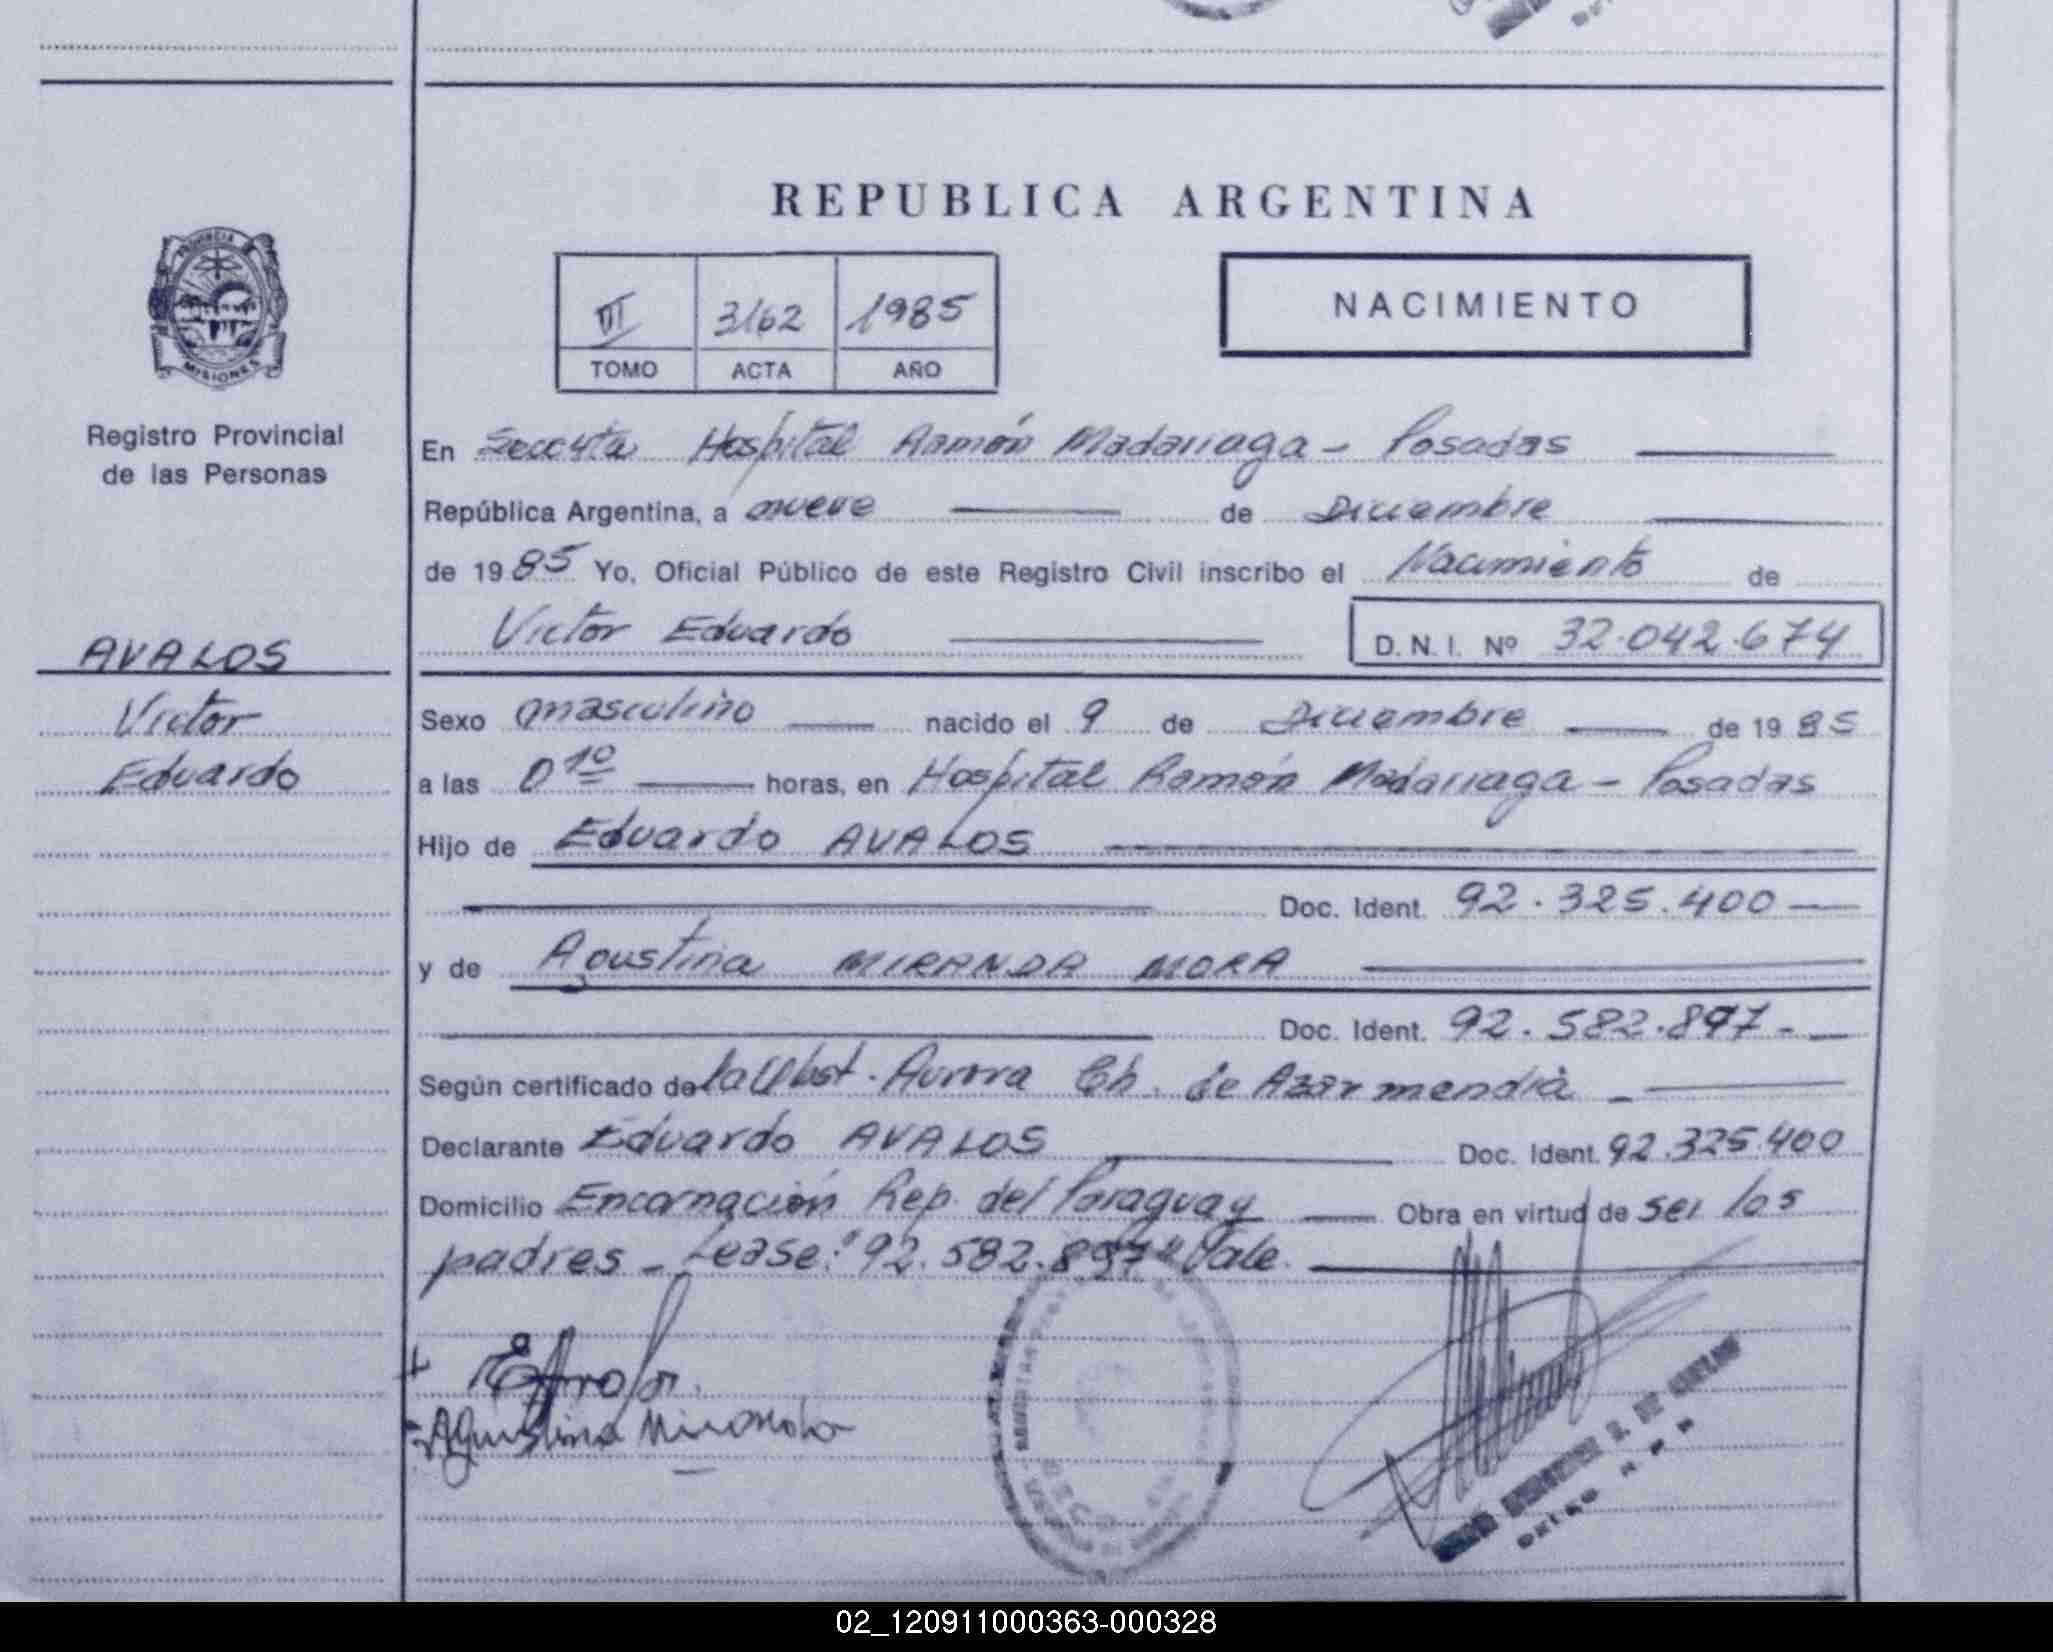 REPUBLICA ARGENTINA
PROVINCIA
MISIONES
Registro Provincial
de las Personas
AVALOS
Victor
Eduardo
3162 1985
TOMO ACTA AÑO
NACIMIENTO
En Hospital Ramón Madariaga - Posadas
República Argentina, a nueve de Diciembre
de 1985 Yo, Oficial Público de este Registro Civil inscribo el Nacimiento de
Victor Eduardo D.N.I. Nº 32.042.674
Sexo masculino nacido el 9 de Diciembre de 1985
a las 01º horas, en Hospital Ramón Madariaga - Posadas
Hijo de Eduardo AVALOS
Doc. Ident. 92.325.400
y de Agustina MIRANDA MORA
Doc. Ident. 92.582.897-
Según certificado de la Obst. Aurora Ch. de Azarmendia -
Declarante Eduardo AVALOS Doc. Ident. 92.325.400
Domicilio Encarnación Rep. del Paraguay Obra en virtud de ser los
padres - Lease: "92.582.897" Vale.
Agustina Miranda
02_120911000363-000328